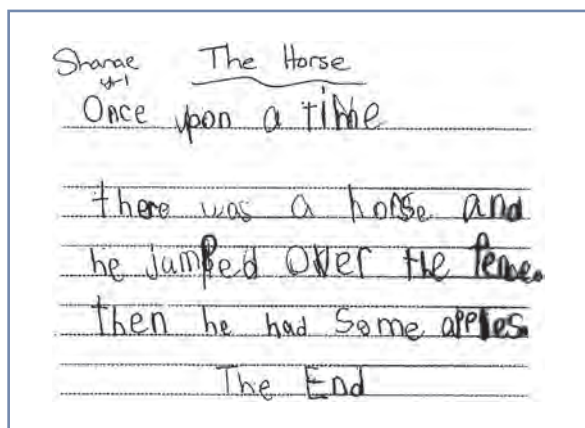 Shanae The Horse
yr 1
Once upon a time
there was a horse and
he jumped over the fence.
then he had some apples.
The End